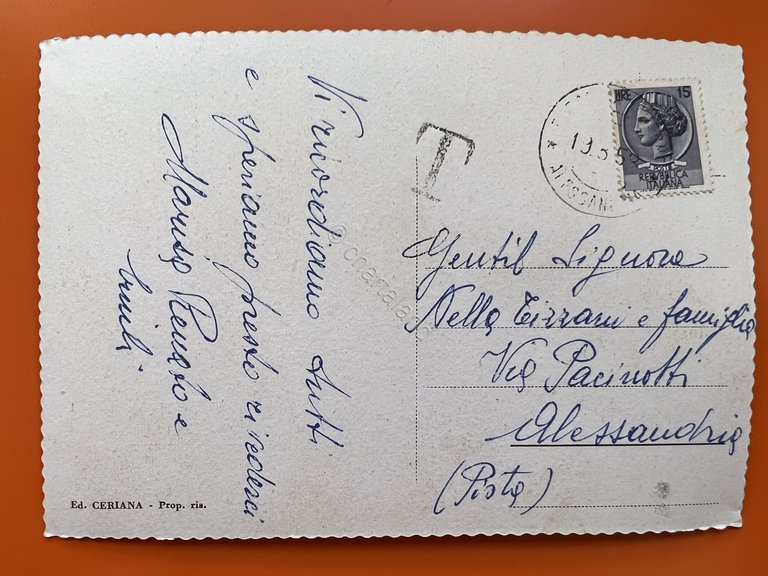 Vi ricordiamo tutti
e speriamo presto rivederci
Marisa Renato e
LIRE 15
POSTE
REPVBBLICA
ITALIANA
19.5.5
ALESSAN
T
Gentil Signora
Nella Tizzani e famiglia
Via Pacinotti
Alessandria
(Pista)
Ed. CERIANA - Prop. ris.